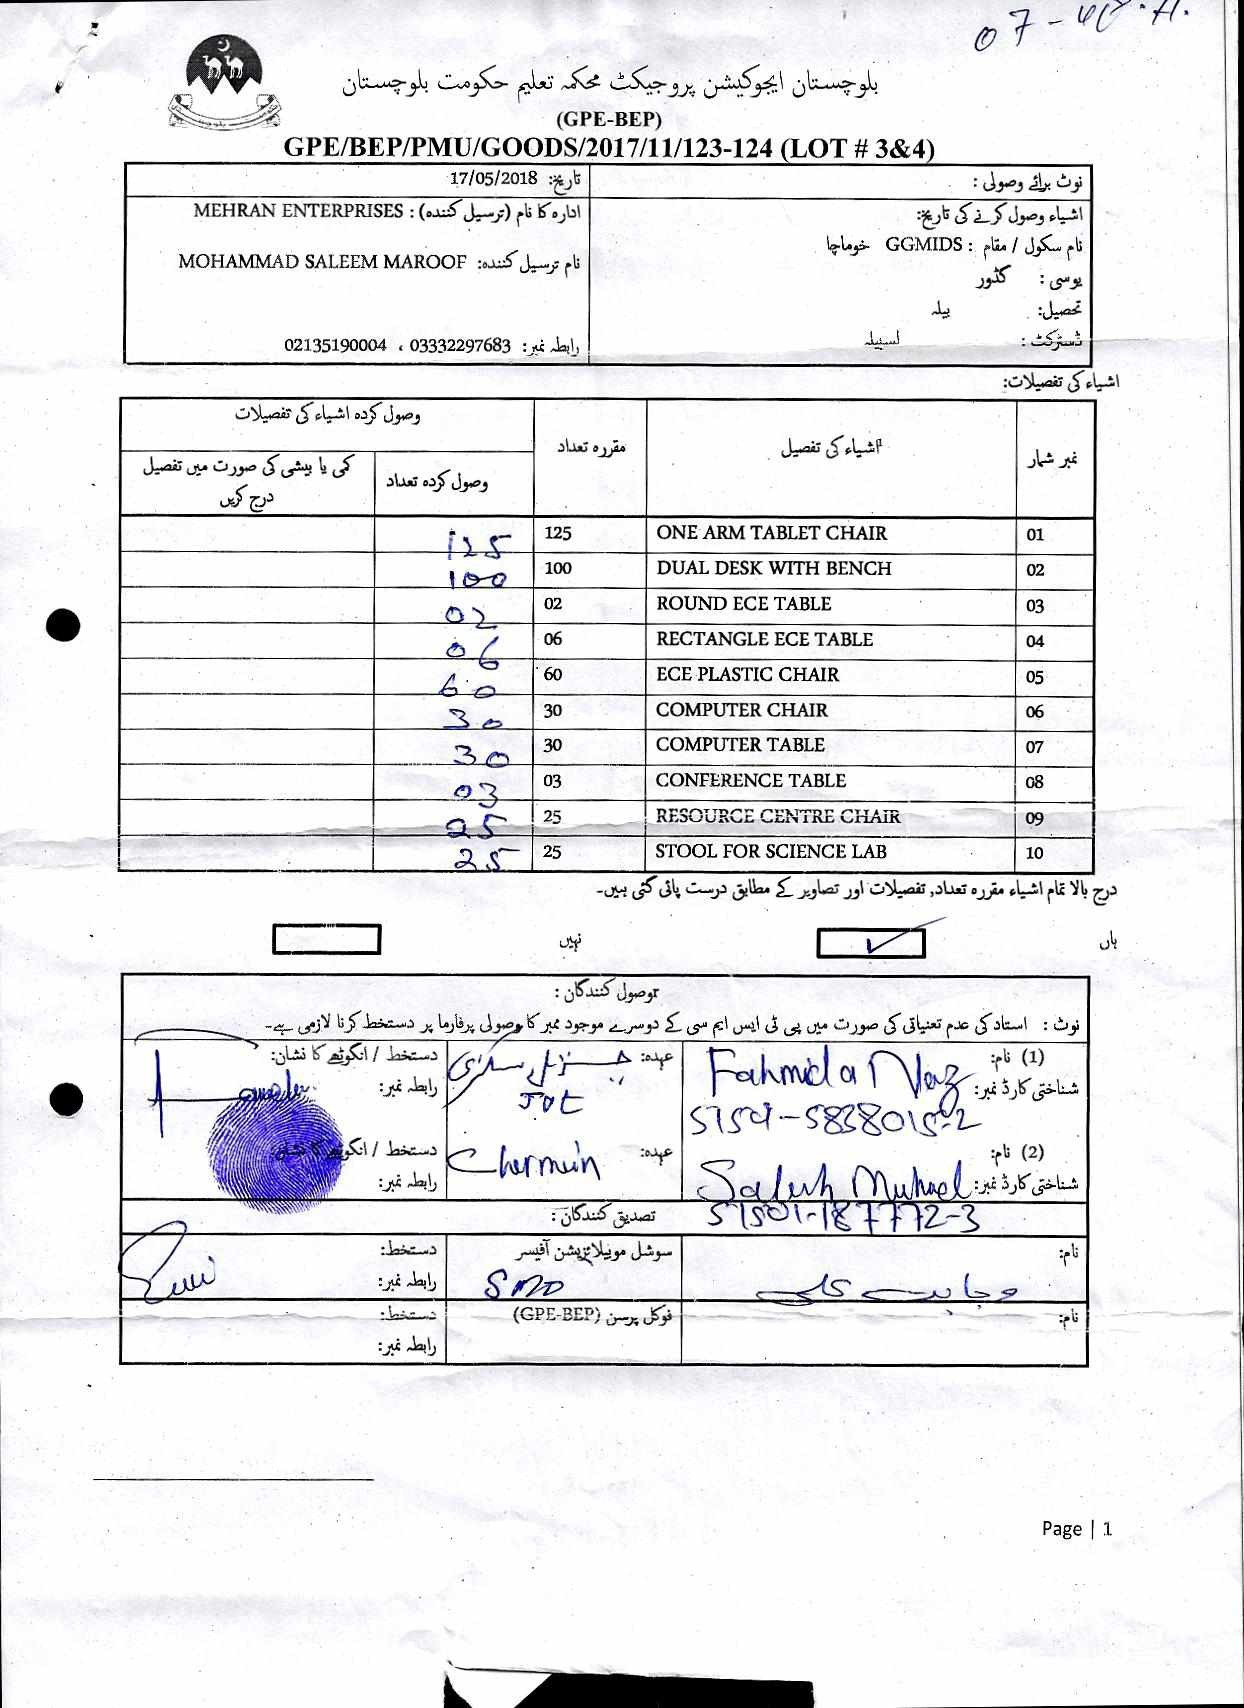 بلوچستان ایجوکیشن پروجیکٹ محکمہ تعلیم حکومت بلوچستان
(GPE-BEP)
GPE/BEP/PMU/GOODS/2017/11/123-124 (LOT # 3&4)
نوٹ برائے وصولی :
تاریخ: 17/05/2018
اشیاء وصول کرنے کی تاریخ:
ادارہ کا نام (ترسیل کنندہ) : MEHRAN ENTERPRISES
نام سکول / مقام : GGMIDS خوماچا
نام ترسیل کنندہ: MOHAMMAD SALEEM MAROOF
یوسی : گدور
تحصیل: بیلہ
ڈسٹرکٹ : لسبیلہ
رابطہ نمبر: 03332297683 ، 02135190004
اشیاء کی تفصیلات:
نمبر شمار اشیاء کی تفصیل مقررہ تعداد وصول کردہ اشیاء کی تفصیلات
وصول کردہ تعداد کمی یا بیشی کی صورت میں تفصیل درج کریں
01 ONE ARM TABLET CHAIR 125 125
02 DUAL DESK WITH BENCH 100 100
03 ROUND ECE TABLE 02 02
04 RECTANGLE ECE TABLE 06 06
05 ECE PLASTIC CHAIR 60 60
06 COMPUTER CHAIR 30 30
07 COMPUTER TABLE 30 30
08 CONFERENCE TABLE 03 03
09 RESOURCE CENTRE CHAIR 25 25
10 STOOL FOR SCIENCE LAB 25 25
درج بالا تمام اشیاء مقررہ تعداد, تفصیلات اور تصاویر کے مطابق درست پائی گئی ہیں۔
ہاں ✓ نہیں
وصول کنندگان :
نوٹ : استاد کی عدم تعنیاتی کی صورت میں پی ٹی ایس ایم سی کے دوسرے موجود ممبر کا وصولی پرفارما پر دستخط کرنا لازمی ہے۔
(1) نام: Fahmida Naz عہدہ: جنرل سیکرٹری دستخط / انگوٹھے کا نشان:
شناختی کارڈ نمبر: JVT رابطہ نمبر:
(2) نام: عہدہ: Chermein دستخط / انگوٹھے کا نشان:
شناختی کارڈ نمبر: رابطہ نمبر:
51501-187772-3
تصدیق کنندگان :
نام: سوشل موبیلائزیشن آفیسر دستخط:
SMO رابطہ نمبر:
نام: فوکل پرسن (GPE-BEP) دستخط:
رابطہ نمبر:
Page | 1